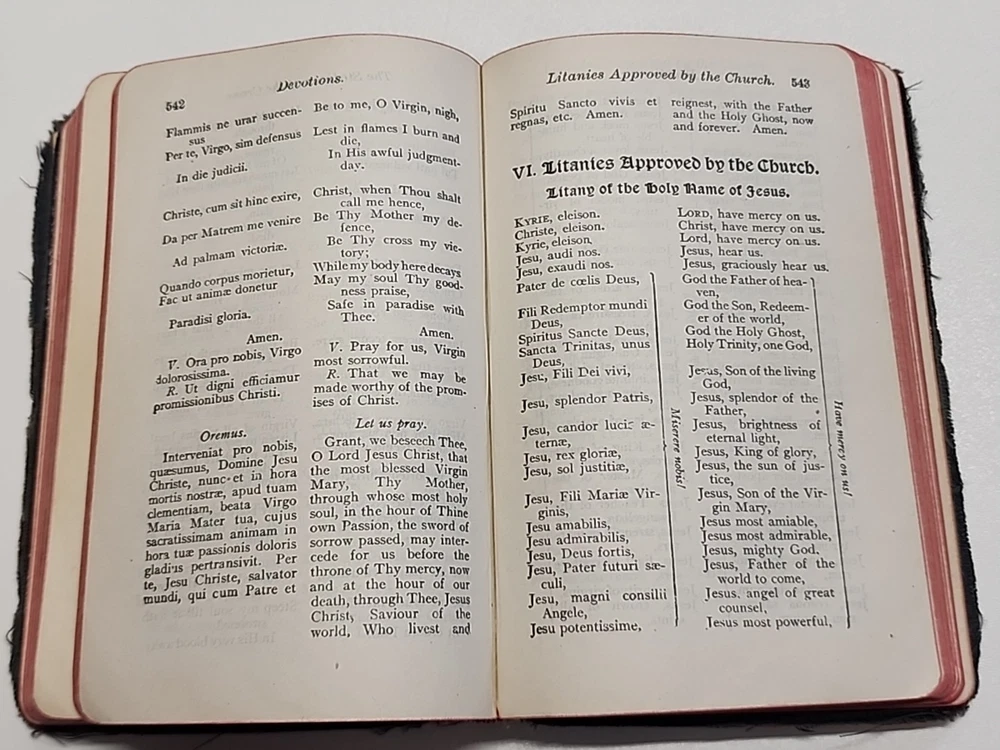 542
Devotions.
Flammis ne urar succen-
sus
Per te, Virgo, sim defensus
In die judicii.
Christe, cum sit hinc exire,
Da per Matrem me venire
Ad palmam victoriæ.
Quando corpus morietur,
Fac ut animæ donetur
Paradisi gloria.
Amen.
V. Ora pro nobis, Virgo
dolorosissima.
R. Ut digni efficiamur
promissionibus Christi.
Oremus.
Interveniat pro nobis,
quæsumus, Domine Jesu
Christe, nunc et in hora
mortis nostræ, apud tuam
clementiam, beata Virgo
Maria Mater tua, cujus
sacratissimam animam in
hora tuæ passionis doloris
gladius pertransivit. Per
te, Jesu Christe, salvator
mundi, qui cum Patre et
Be to me, O Virgin, nigh,
Lest in flames I burn and
die,
In His awful judgment-
day.
Christ, when Thou shalt
call me hence,
Be Thy Mother my de-
fence,
Be Thy cross my vic-
tory;
While my body here decays
May my soul Thy good-
ness praise,
Safe in paradise with
Thee.
Amen.
V. Pray for us, Virgin
most sorrowful.
R. That we may be
made worthy of the prom-
ises of Christ.
Let us pray.
Grant, we beseech Thee,
O Lord Jesus Christ, that
the most blessed Virgin
Mary, Thy Mother,
through whose most holy
soul, in the hour of Thine
own Passion, the sword of
sorrow passed, may inter-
cede for us before the
throne of Thy mercy, now
and at the hour of our
death, through Thee, Jesus
Christ, Saviour of the
world, Who livest and
Litanies Approved by the Church. 543
Spiritu Sancto vivis et
regnas, etc. Amen.
reignest, with the Father
and the Holy Ghost, now
and forever. Amen.
VI. Litanies Approved by the Church.
Litany of the Holy Name of Jesus.
KYRIE, eleison.
Christe, eleison.
Kyrie, eleison.
Jesu, audi nos.
Jesu, exaudi nos.
Pater de cœlis Deus,
Fili Redemptor mundi
Deus,
Spiritus Sancte Deus,
Sancta Trinitas, unus
Deus,
Jesu, Fili Dei vivi,
Jesu, splendor Patris,
Jesu, candor lucis æ-
ternæ,
Jesu, rex gloriæ,
Jesu, sol justitiæ,
Jesu, Fili Mariæ Vir-
ginis,
Jesu amabilis,
Jesu admirabilis,
Jesu, Deus fortis,
Jesu, Pater futuri sæ-
culi,
Jesu, magni consilii
Angele,
Jesu potentissime,
Miserere nobis!
LORD, have mercy on us.
Christ, have mercy on us.
Lord, have mercy on us.
Jesus, hear us.
Jesus, graciously hear us.
God the Father of hea-
ven,
God the Son, Redeem-
er of the world,
God the Holy Ghost,
Holy Trinity, one God,
Jesus, Son of the living
God,
Jesus, splendor of the
Father,
Jesus, brightness of
eternal light,
Jesus, King of glory,
Jesus, the sun of jus-
tice,
Jesus, Son of the Vir-
gin Mary,
Jesus most amiable,
Jesus most admirable,
Jesus, mighty God,
Jesus, Father of the
world to come,
Jesus, angel of great
counsel,
Jesus most powerful,
Have mercy on us!